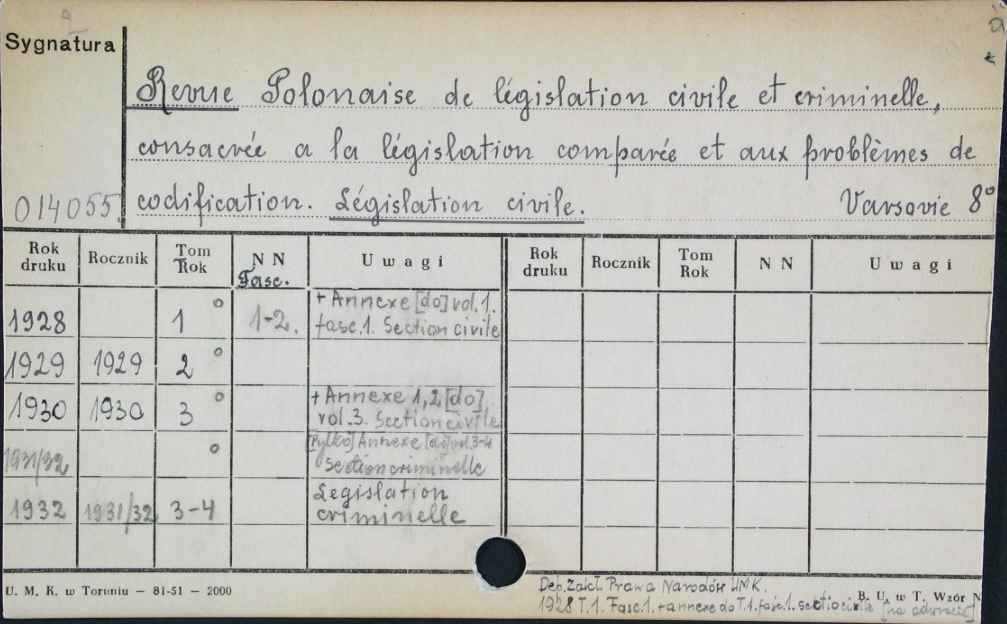 Sygnatura
Revue Polonaise de législation civile et criminelle,
consacrée a la législation comparée et aux problèmes de
014055 codification. Législation civile. Varsovie 8°
Rok druku Rocznik Tom Rok N N Fasc. U w a g i Rok druku Rocznik Tom Rok N N U w a g i
1928 1° 1-2. + Annexe [do] vol. 1.
fasc. 1. Section civile
1929 1929 2°
1930 1930 3° + Annexe 1, 2 [do]
vol. 3. Section civile
1931/32 ° [Tylko] Annexe [do] vol. 3-4
Section criminelle
1932 1931/32 3-4 Legislation
criminelle
U. M. K. w Toruniu — 81-51 — 2000
Dep. Zakł. Prawa Narodów UMK.
B. U. w T. Wzór N
1928 T. 1. Fasc. 1. + annexe do T. 1. fasc. 1. [na odwrocie]